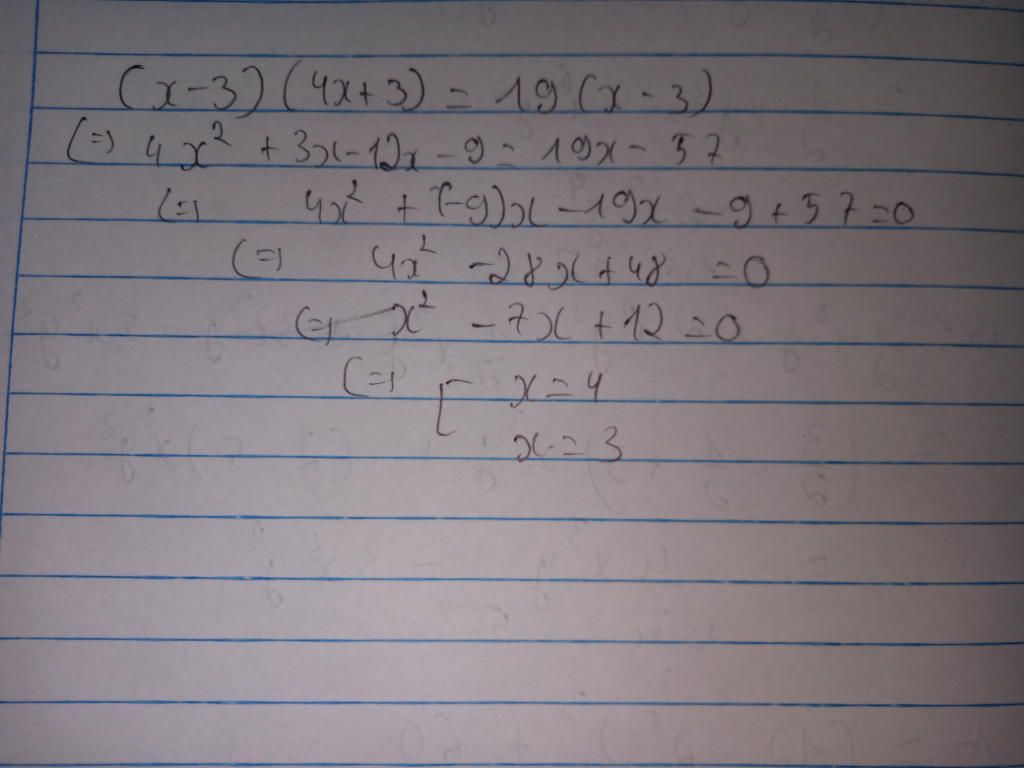 (x-3)(4x+3) = 19(x-3)
(=) 4x² + 3x-12x-9 = 19x-57
(=) 4x² + (-9)x -19x -9+57=0
(=) 4x² -28x+48 =0
(=) x² -7x+12=0
(=) [ x=4
x=3